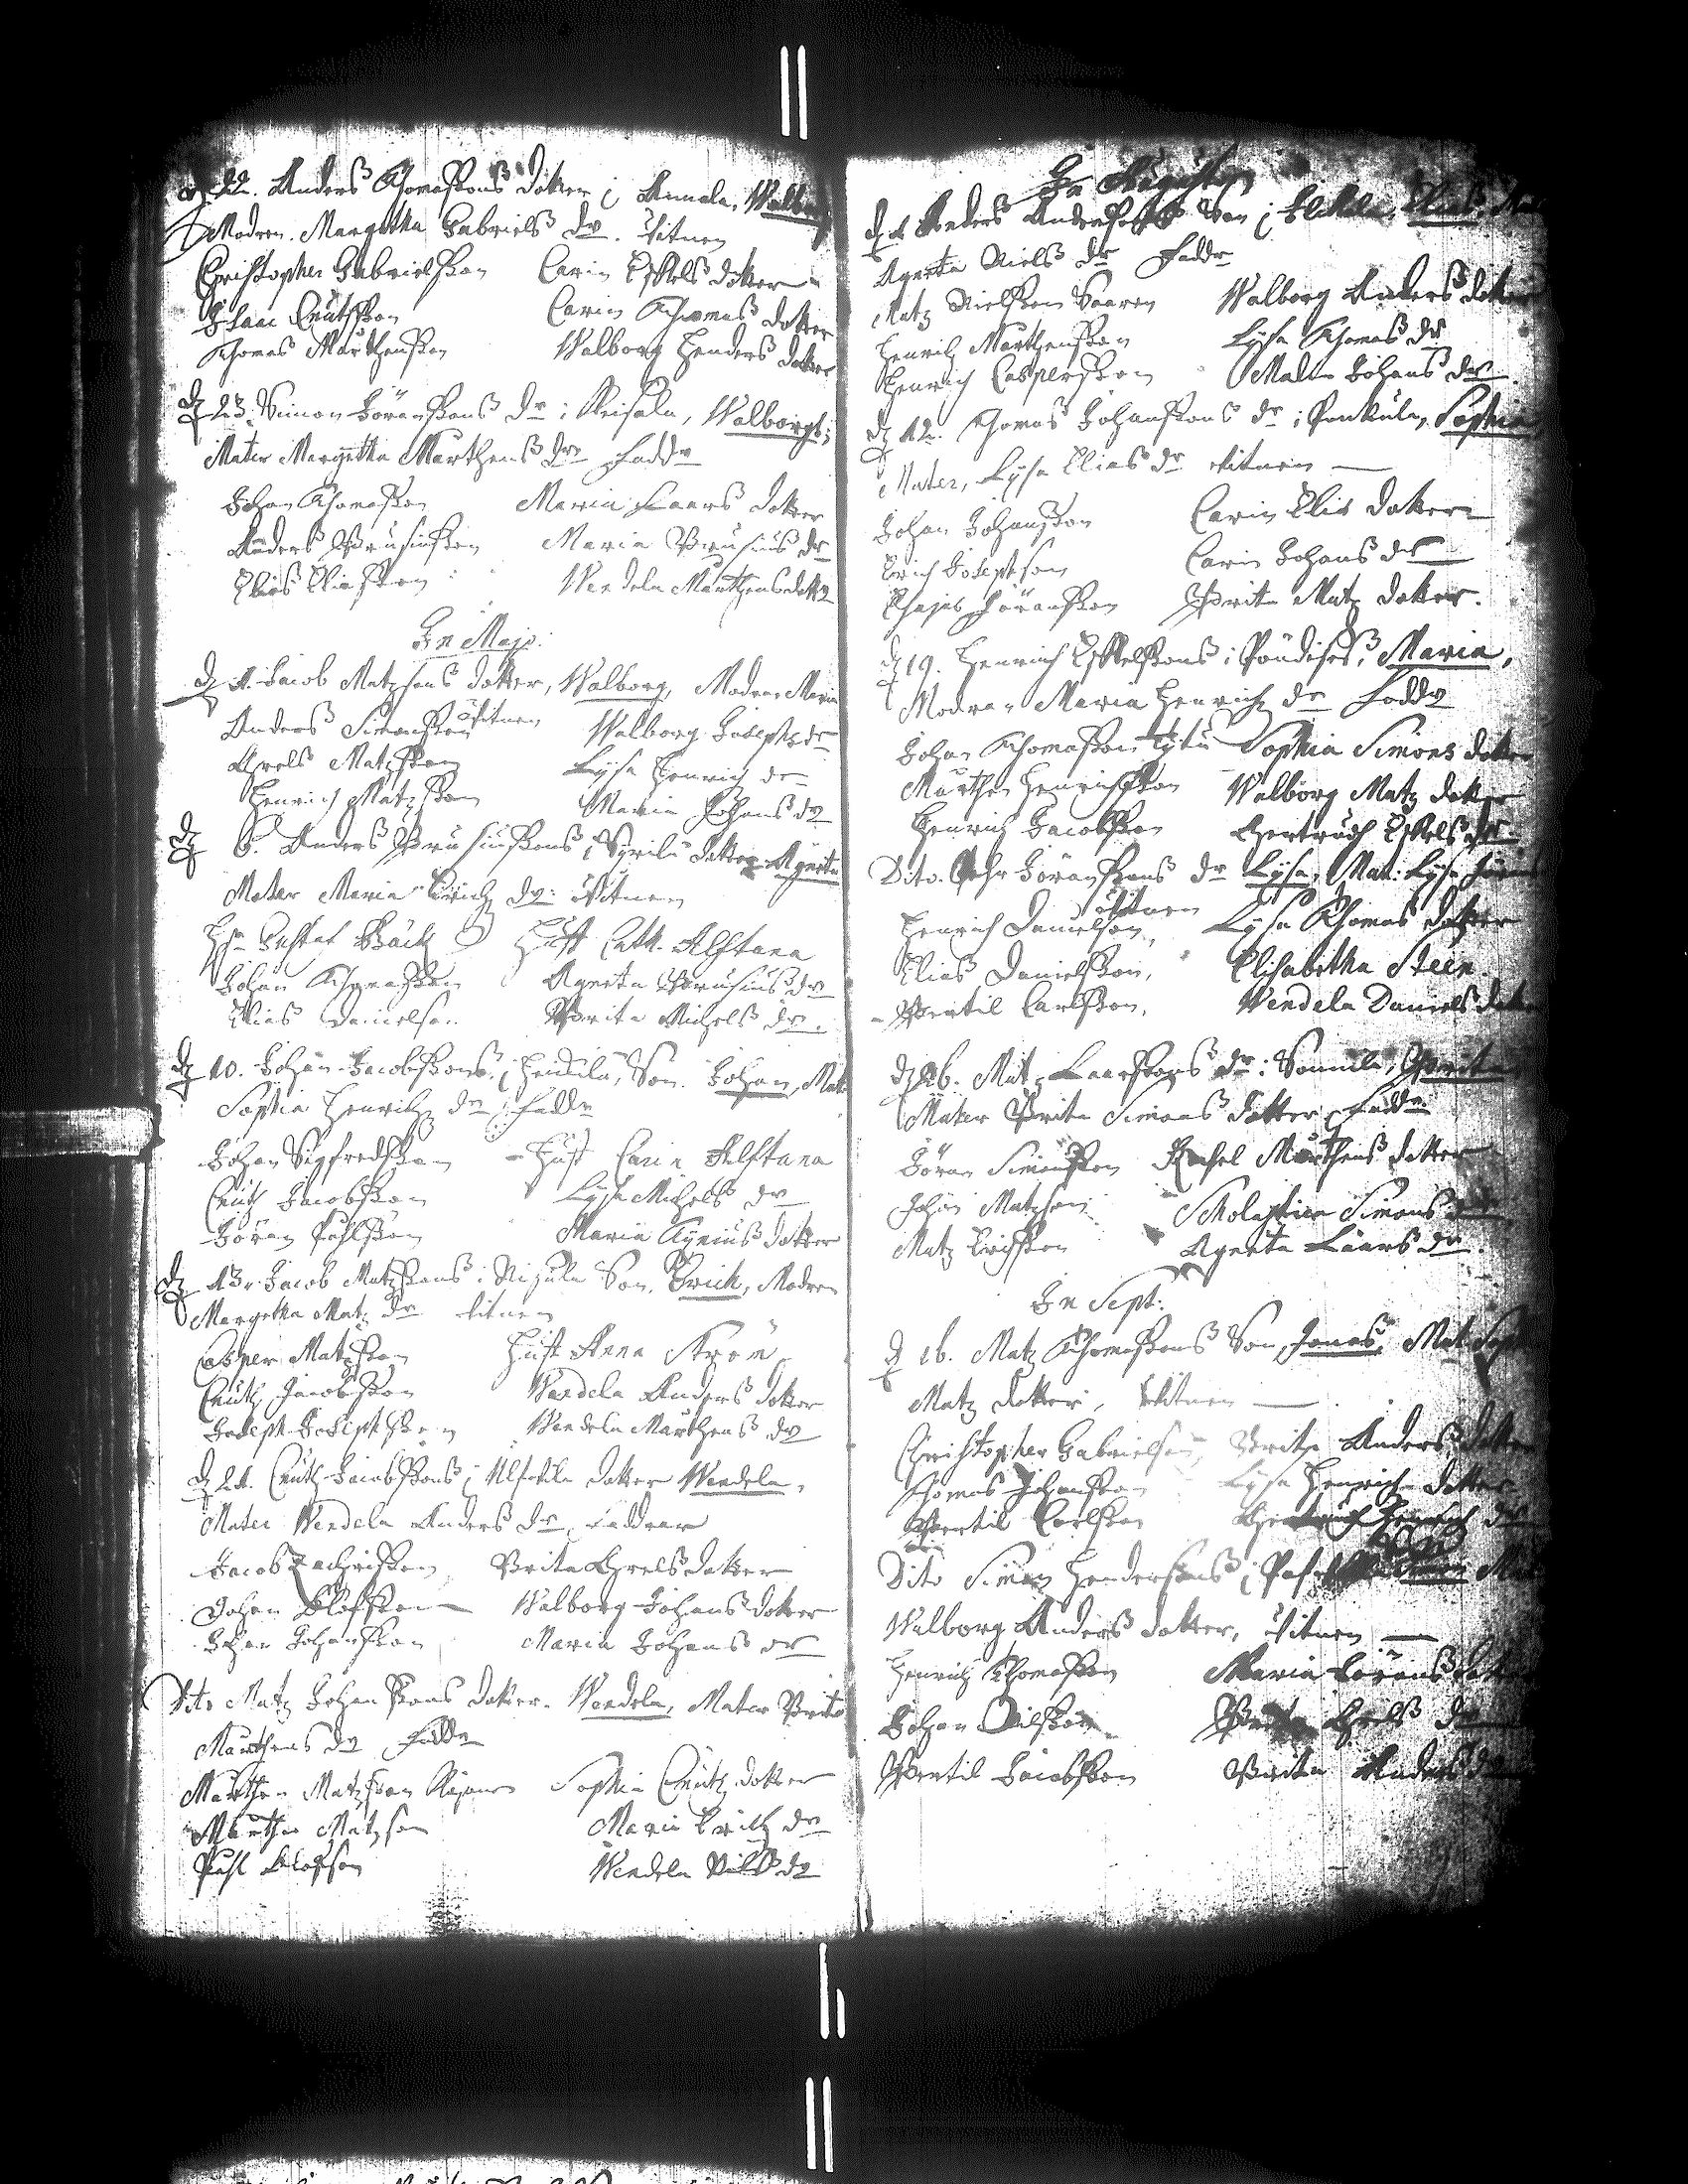 22. Anders Thomassons dotter i Annala, Walborg
Modren. Margetha Gabriels dr. Vitnen
Christopher Gabrielsson Carin Eskels dotter
Isaac Cnutsson Carin Thomas dotter
Thomas Marthensson Walborg Henders dotter
d 23. Simon Göranssons dr i Walborg;
Mater Margetha Marthens dr Fadd
Johan Thomasson Maria Laars dotter
Anders Brusiusson Maria Brusius dr
Elias Eliasson Wendela Marthens dottr
In Majo:
d 1. Jacob Matzsons dotter, Walborg, Modren Maria
Vitnen
Anders Simonsson Walborg Josephs dr
Axels Matzson Lysa Henrich dr
Henrich Matzson Maria Johans dr
d 6. Anders Brusiussons i dotter Agneta
Mater Maria Erich dr: Vitnen
Hr Gustaf Bäck Hust Cath. Alftana
Johan Thomasson Agneta Brusius dr
Elias Danielson Brita Michels dr.
d 10. Johan Jacobssons i Son. Johan, Mat
Sophia Henrich dr, Fadd
Johan Sigfredsson Hust Carin Alftana
Cnuth Jacobsson Lysa Michels dr
Göran Pahlsson Maria dotter
d 13. Jacob Matzsons i Son. Erich, Modren
Margetha Matz dr Vitnen
Casper Matzson Hust Anna Ström
Cnuth Jacobsson Wendela Anders dotter
Joseph Josephsson Wendela Marthens dr
d 24. Cnuth Jacobssons i dotter Wendela,
Mater Wendela Anders dr, Faddrar
Jacob Zachrisson, Brita Axels dotter
Johan Olofsson Walborg Johans dotter
Johan Johansson Maria Johans dr
Dito Matz Johanssons dotter. Wendela, Mater Brita
Marthens dr Fadd
Marthen Matzson Sophia Cnuth dotter
Marthen Matzson Maria Erich dr
Pahl Olofson Wendela Nils dr
In Augusti
d Anders Anderssons Son i
Agneta Niels dr Fadd
Matz Nielsson Walborg Anders dotter
Henrich Marthensson Lysa Thomas dr
Henrich Caspersson Malin Johans dr
d 12. Thomas Johanssons dr i Sophia
Mater, Lysa Elias dr Vitnen
Johan Johansson Carin Elis dotter
Erich Josephson Carin Johans dr
Göransson Brita Matz dotter.
d 19. Henrich Eskelssons i Maria,
Modren Maria Henrich dr Fadd
Johan Thomasson Sophia Simons dotter
Marthen Henrichsson Walborg Matz dotter
Henrich Jacobsson Ghertrudh Eskels dr.
Dito. Göranssons dr Lysa, Mat: Lysa
Vitnen
Henrich Danielson, Lysa Thomas dotter
Elias Danielsson, Elisabetha Steen.
Bertil Carlsson, Wendela Daniels dotter
d 26. Mat. Laarssons dr i Brita
Mater Brita Simons dotter, Fadd
Göran Simonsson Rachel Marthens dotter
Johan Matzson Scholastica Simons dr
Matz Erichsson Agneta Laars dr.
In Sept:
d 16. Matz Thomassons Son, Jonas, Mat.
Matz dotter, Vitnen
Christopher Gabrielson, Brita Anders dotter
Thomas Johansson Lysa Henrich dotter
Bertil Carlsson Henrich dr
Dito Simon Henderssons i
Walborg Anders dotter, Vitnen
Henrich Thomasson Maria Görans dotter
Johan Nilsson dr
Bertil Jacobsson Brita Anders dr